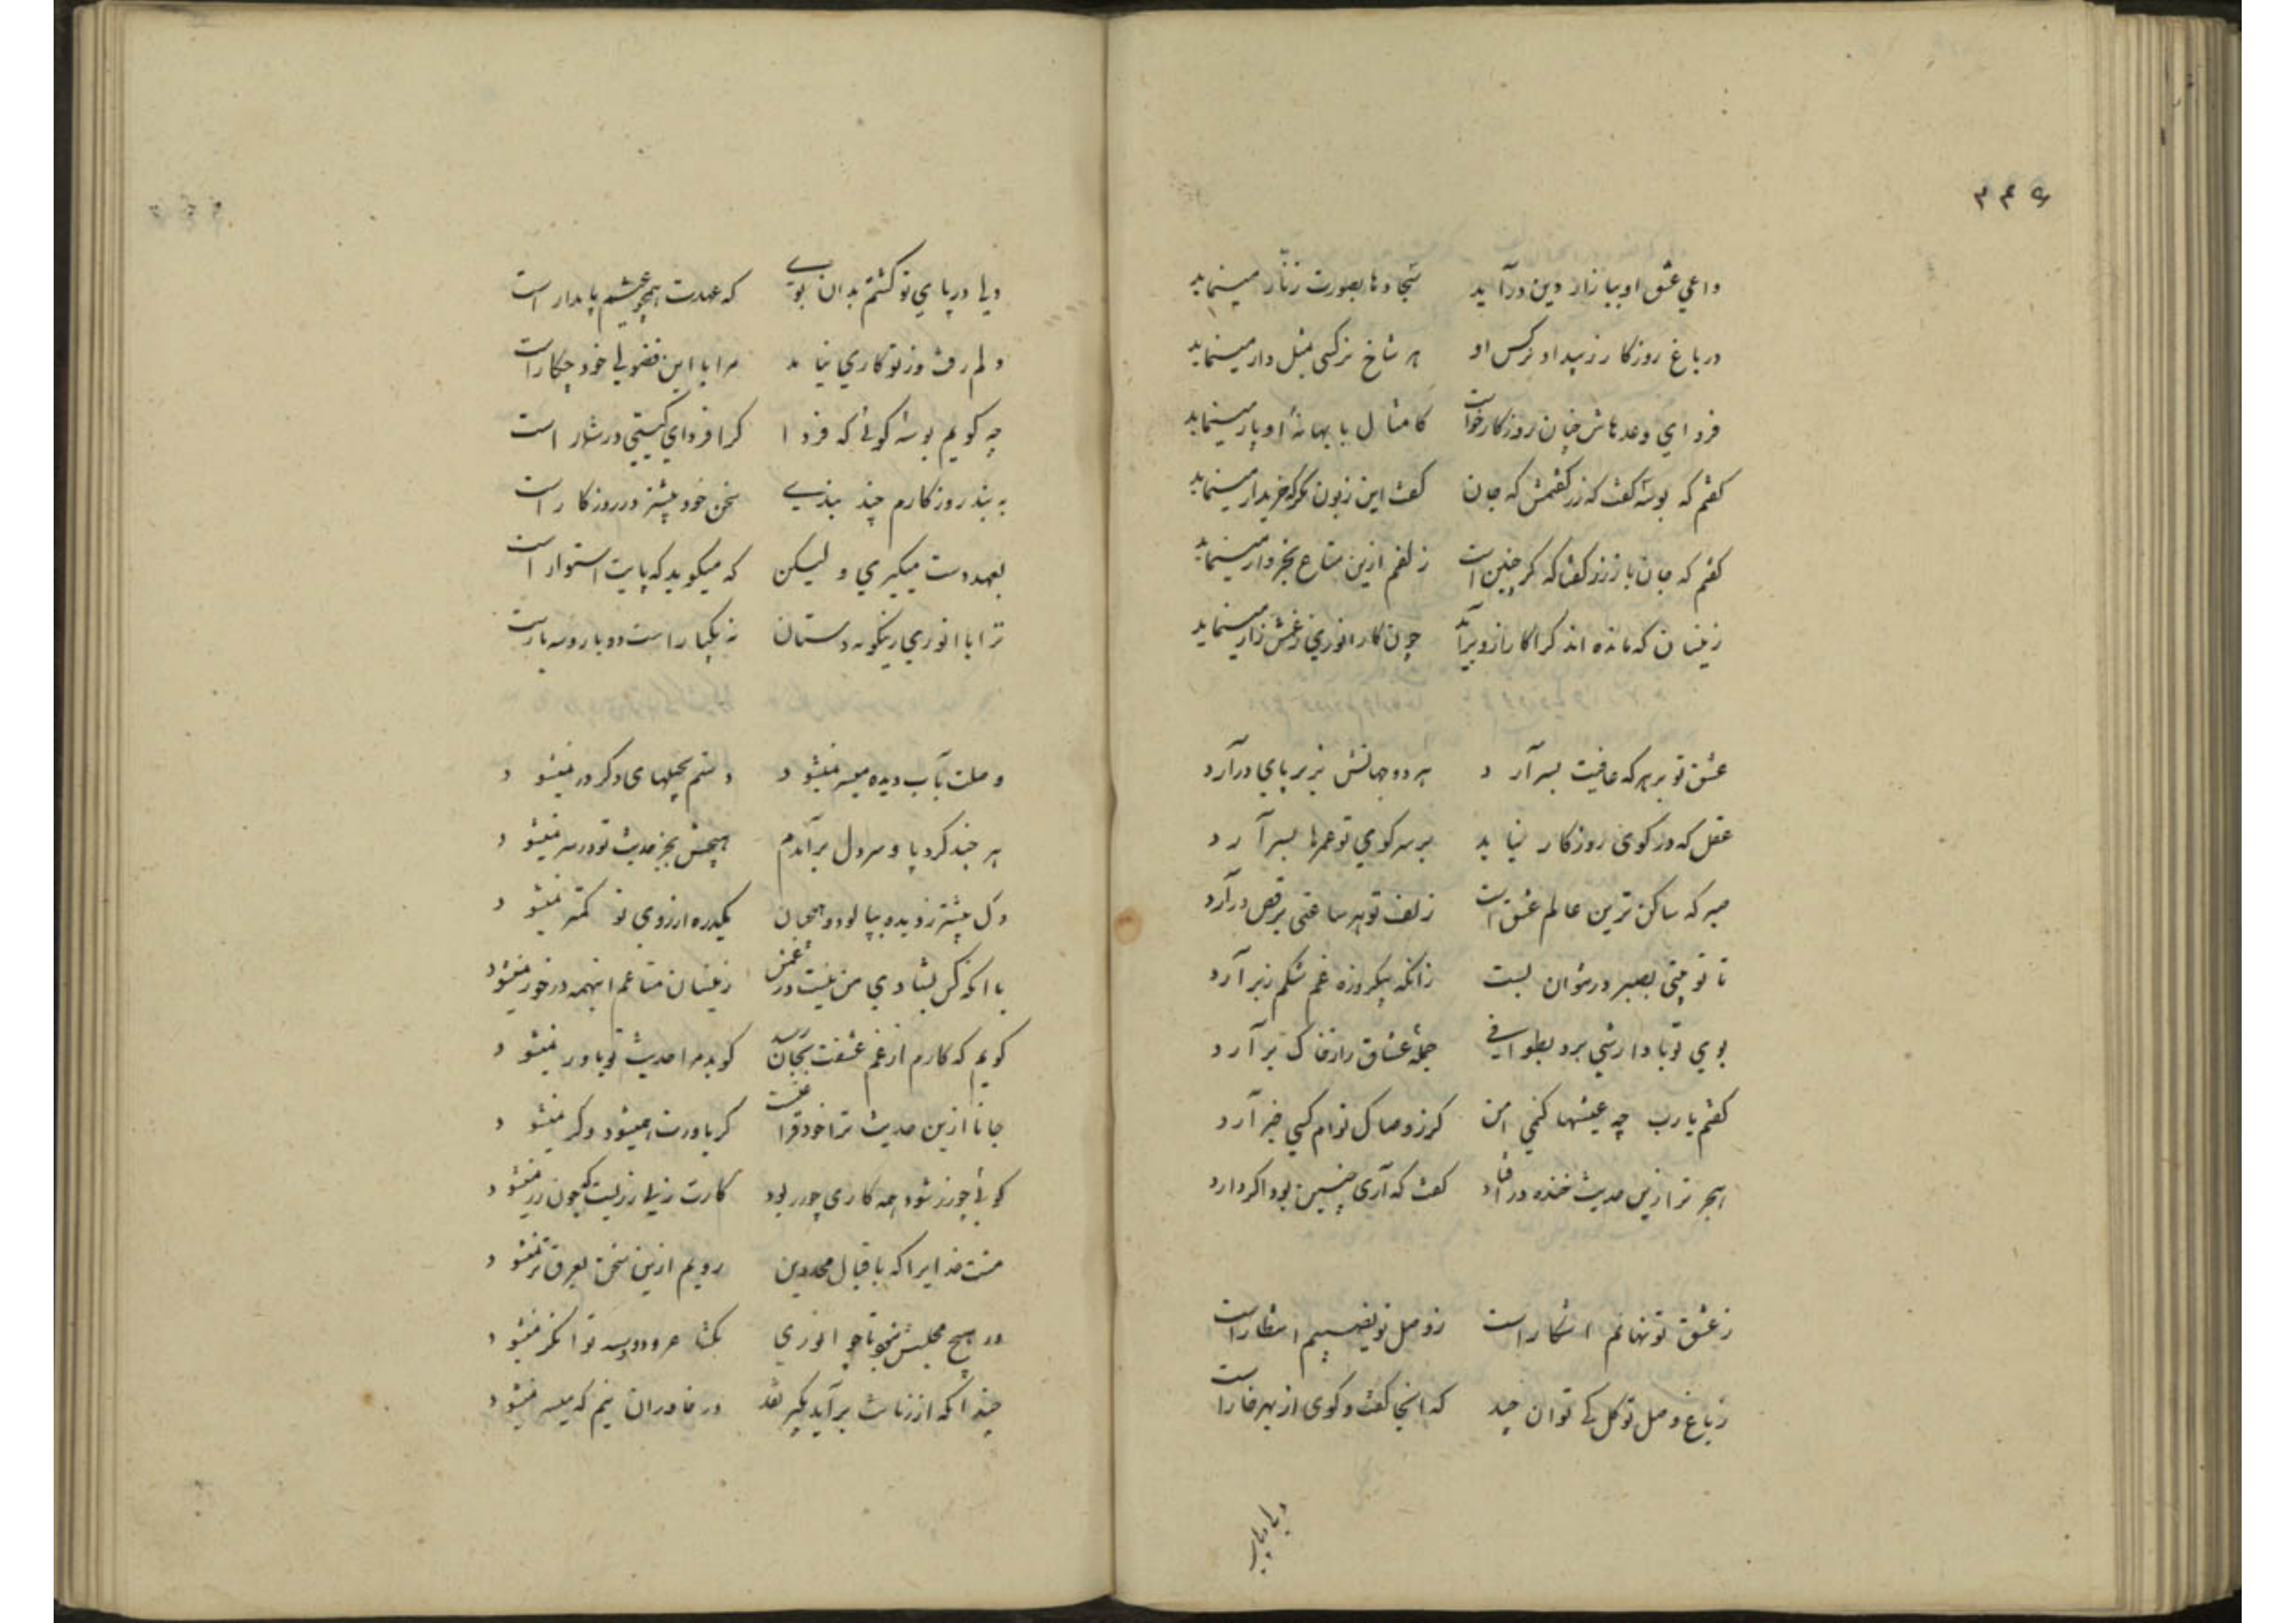 ۳۴۶
داعی عشق او ببازار دین درآید سجادها بصورت زنار مینماید
در باغ روزکار ز بیداد نرکس او هر شاخ نرکسی بمثل دار مینماید
فردای وعدهاش چنان روزکار خواست کامثال با بهانه او پار مینماید
کفتم که بوسه کفت که زر کفتمش که جان کفت این زبون نکر که خریدار مینماید
کفتم که جان به از زر کفتا که کر چنین است زلفم ازین متاع بخروار مینماید
زینسان که مانده اند کرا کار ازو برآید چون کار انوری ز غمش زار مینماید
عشق تو بر هر که عافیت بسر آرد هر دو جهانش بزیر پای درآرد
عقل که در کوی روزکار نیاید بر سر کوی تو عمرها بسر آرد
صبر که ساکن ترین عالم عشق است زلف تو هر ساعتی برقص درآرد
تا تو چنی بصبر در نتوان بست زانکه یکروزه غم شکم زبر آرد
بوی تو باد ار شبی برد بطوافی جمله عشاق را ز خاک برآرد
کفتم یارب چه عیشها کنمی من کر ز وصال توام کسی خبر آرد
هجر ترا زین حدیث خنده درافتاد کفت که آری چنین بود اکر دارد
ز عشق تو نهانم آشکار است ز وصل تو نصیبم انتظار است
ز باغ وصل تو کل کی توان چید که آنجا کفت و کوی از بهر خار است
ولی در پای
ولی در پای تو کشتم بدان بوی که عهدت همچو عشقم پایدار است
دلم رفت و ز تو کاری نیامد مرا با این فضولی خود چکار است
چه کویم بوسه کوئی که فردا کرا فردای کیتی در شمار است
به بند روزکارم چند بندی سخن خود بیشتر در روزکار است
بعهد دست میکیری و لیکن که میکوید که پایت استوار است
ترا با انوری زینکونه دستان نه یکبار است دو بار و سه بار است
وصلت بآب دیده میسر نمیشود دستم بحیلهای دکر در نمیشود
هر چند کرد پا و سر دل برآمدم هیچش بجز حدیث تو در سر نمیشود
دل بیشتر ز دیده بپالود و همچنان یکذره آرزوی تو کمتر نمیشود
با آنکه کس بشادی من نیست در غمش زینسان متاعم اینهمه در خور نمیشود
کویم که کارم از غم عشقت بجان رسید کوید مرا حدیث تو باور نمیشود
جانا ازین حدیث ترا خود فراغتست کر باورت همیشود و کر نمیشود
کوئی چو زر شود همه کاری چو زر بود کارت ز بی زریست که چون زر نمیشود
منت خدایرا که باقبال مجد دین رویم ازین سخن بعرق تر نمیشود
در هیچ مجلس نبود تا چو انوری یکشاعر و دو سه توانکر نمیشود
چندانکه از زمانه برآید بکیر نقد در خاوران نیم که میسر نمیشود